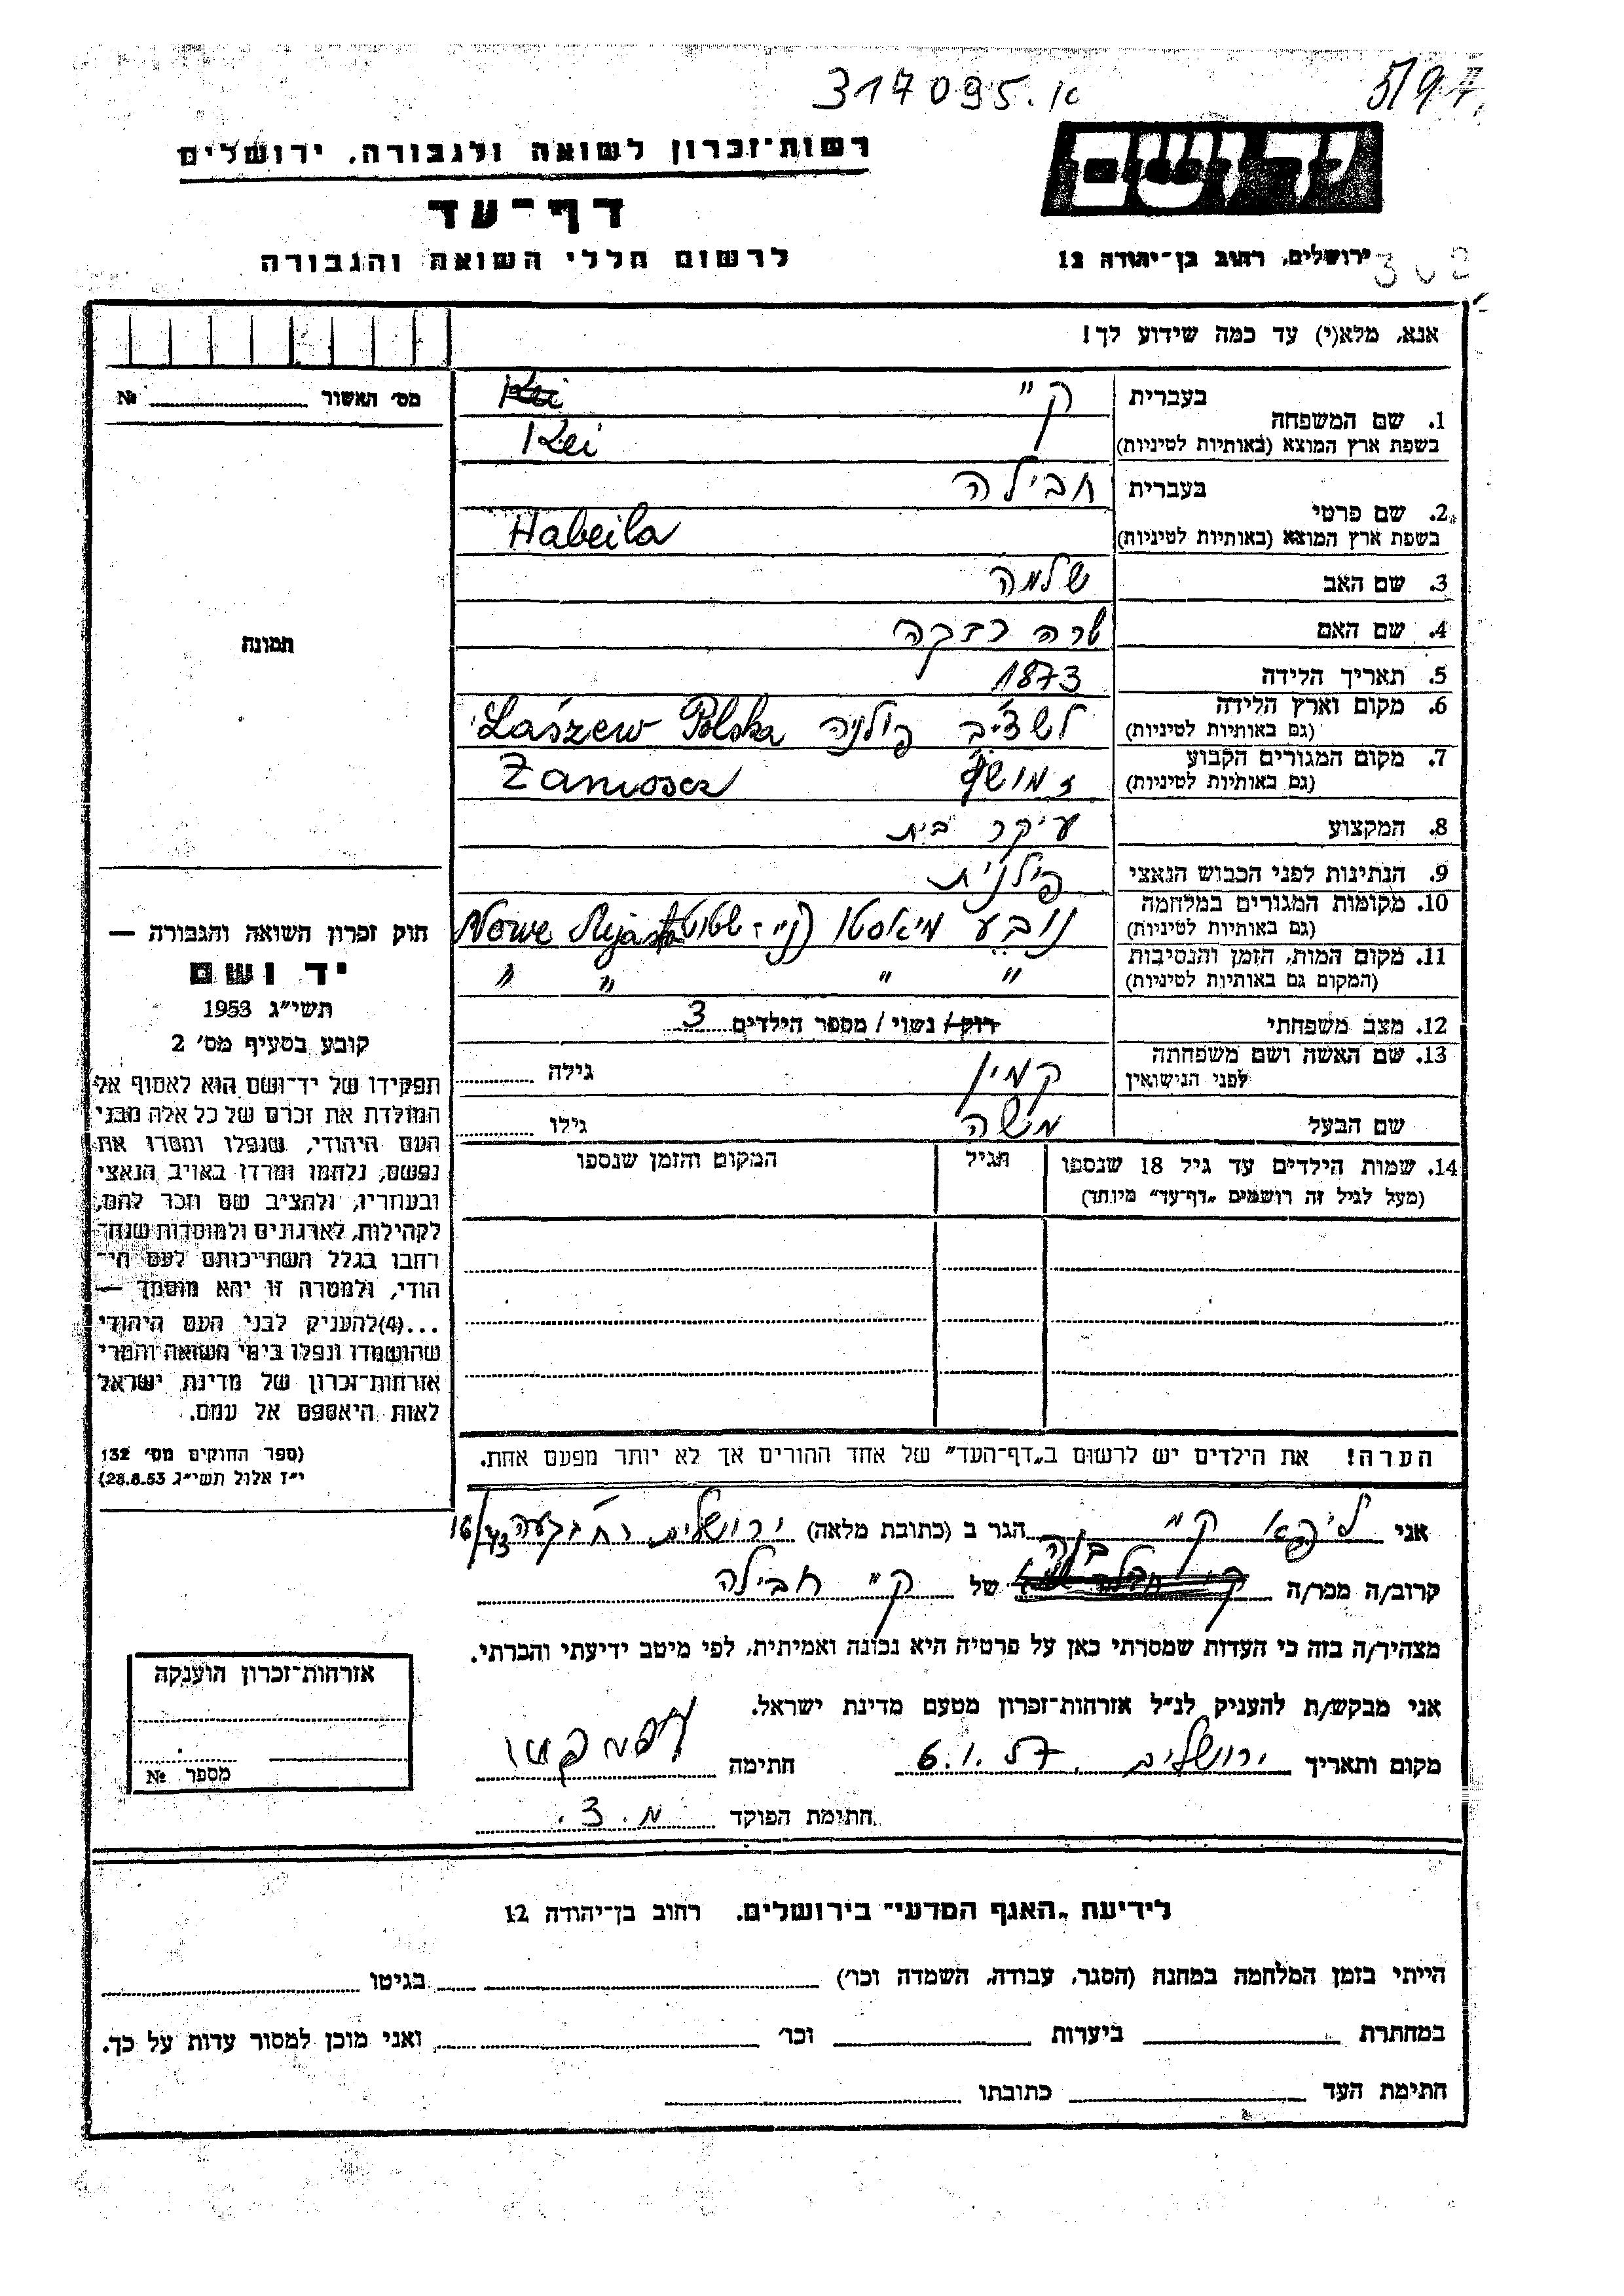 317095.10
5/97
רשות־זכרון לשואה ולגבורה, ירושלים
ידושם
דף־עד
לרשום חללי השואה והגבורה
ירושלים, רחוב בן־יהודה 12
302
אנא, מלא(י) עד כמה שידוע לך!
מס׳ האשור № 
1. שם המשפחה
בעברית ק״ Kei
בשפת ארץ המוצא (באותיות לטיניות) Kei
2. שם פרטי
בעברית חבילה
בשפת ארץ המוצא (באותיות לטיניות) Habeila
3. שם האב שלמה
4. שם האם שרה רבקה
5. תאריך הלידה 1873
6. מקום וארץ הלידה
(גם באותיות לטיניות) פולניה Łaśzew Polska
7. מקום המגורים הקבוע
(גם באותיות לטיניות)
8. המקצוע עיקר בית
9. הנתינות לפני הכבוש הנאצי פולנית
10. מקומות המגורים במלחמה
(גם באותיות לטיניות) נובע מיאסטו Nowe
11. מקום המות, הזמן והנסיבות
(המקום גם באותיות לטיניות) ״ ״ ״ ״
12. מצב משפחתי רוק/ נשוי / מספר הילדים 3
13. שם האשה ושם משפחתה
לפני הנישואין קמין גילה
שם הבעל משה גילו
14. שמות הילדים עד גיל 18 שנספו
(מעל לגיל זה רושמים „דף־עד״ מיוחד)
הגיל
המקום והזמן שנספו
הערה! את הילדים יש לרשום ב„דף־העד״ של אחד ההורים אך לא יותר מפעם אחת.
תמונה
חוק זכרון השואה והגבורה —
יד ושם
תשי״ג 1953
קובע בסעיף מס׳ 2
תפקידו של יד־ושם הוא לאסוף אל
המולדת את זכרם של כל אלה מבני
העם היהודי, שנפלו ומסרו את
נפשם, נלחמו ומרדו באויב הנאצי
ובעוזריו, ולהציב שם וזכר להם,
לקהילות, לארגונים ולמוסדות שנח־
רבו בגלל השתייכותם לעם הי־
הודי, ולמטרה זו יהא מוסמך —
...(4)להעניק לבני העם היהודי
שהושמדו ונפלו בימי השואה והמרי
אזרחות־זכרון של מדינת ישראל
לאות היאספם אל עמם.
(ספר החוקים מס׳ 132
י״ז אלול תשי״ג 28.8.53)
אני ליפא ק״ הגר ב (כתובת מלאה) ירושלים
קרוב/ה מכר/ה בנה של ק״ חבילה
מצהיר/ה בזה כי העדות שמסרתי כאן על פרטיה היא נכונה ואמיתית, לפי מיטב ידיעתי והכרתי.
אני מבקש/ת להעניק לנ״ל אזרחות־זכרון מטעם מדינת ישראל.
מקום ותאריך ירושלים, 6.1.57 חתימה
חתימת הפוקד מ. 3.
אזרחות־זכרון הוענקה
מספר №
לידיעת „האגף המדעי״ בירושלים, רחוב בן־יהודה 12
הייתי בזמן המלחמה במחנה (הסגר, עבודה, השמדה וכו׳) בגיטו
במחתרת ביערות וכו׳ ואני מוכן למסור עדות על כך.
חתימת העד כתובתו